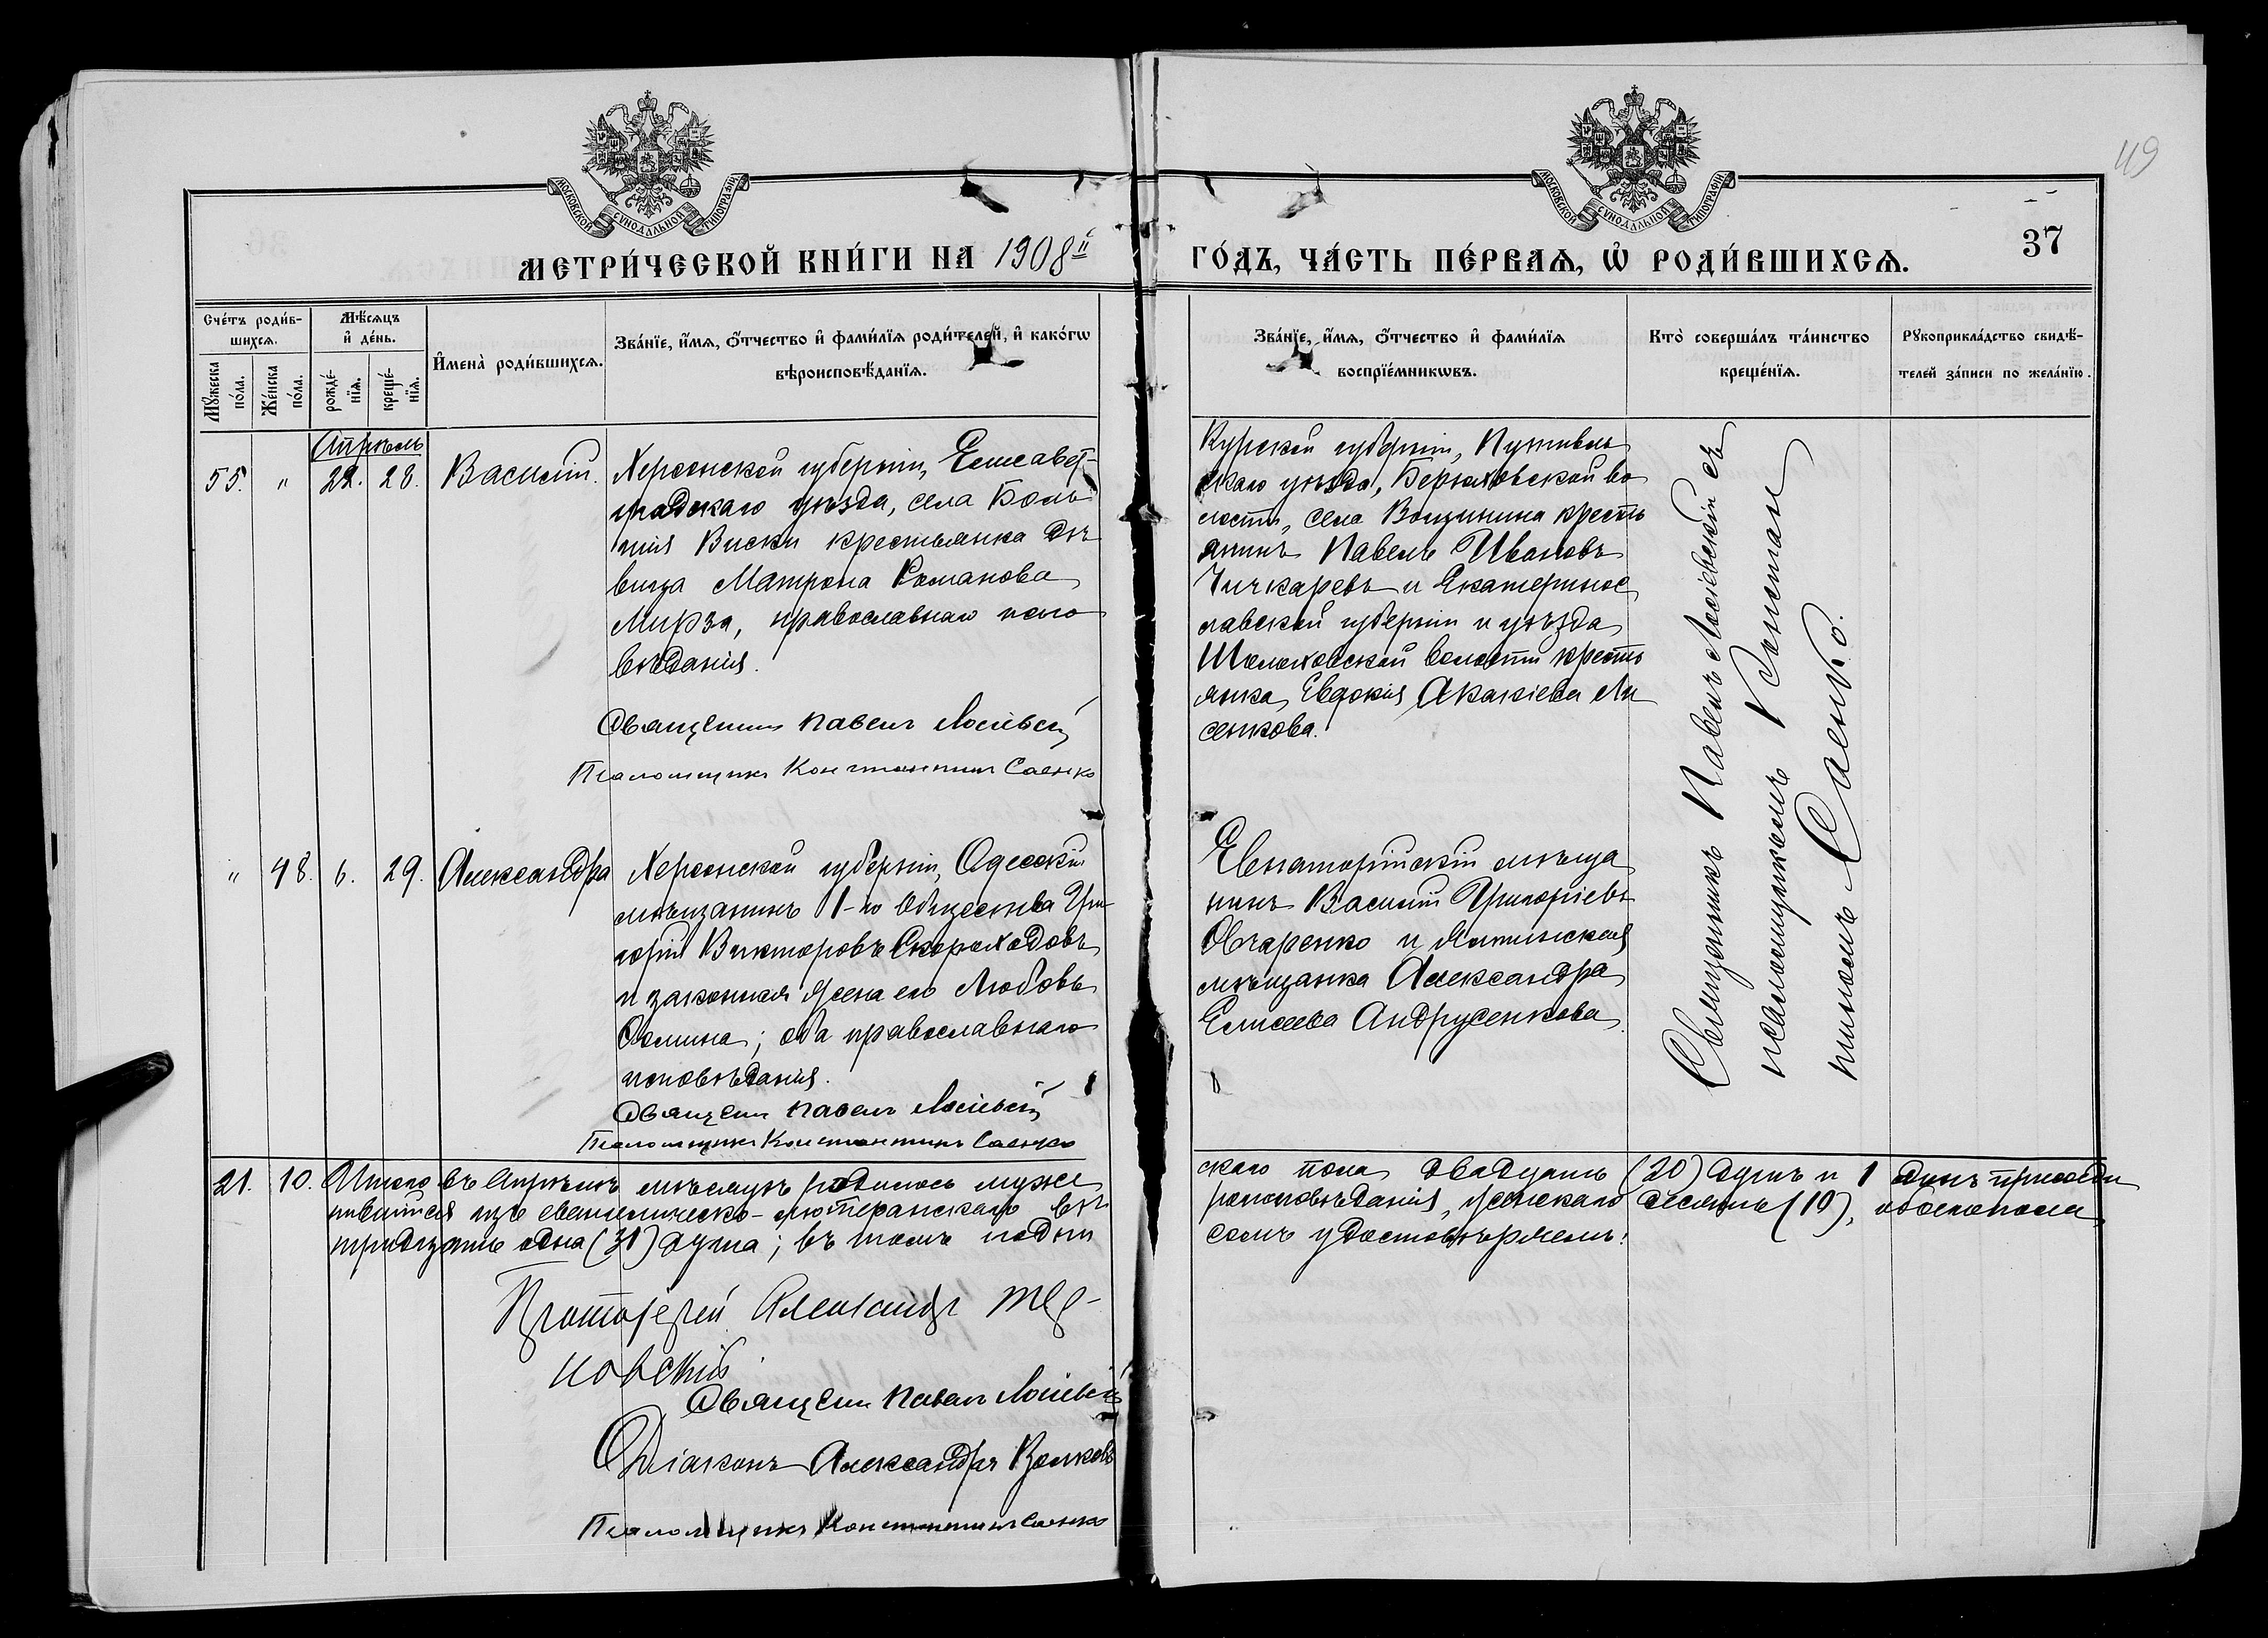 МОСКОВСКОЙ СУНОДАЛЬНОЙ ТИПОГРАФІИ
МОСКОВСКОЙ СУНОДАЛЬНОЙ ТИПОГРАФІИ
49
37
МЕТРИ́ЧЕСКОЙ КНИ́ГИ НА 1908й
ГО́ДЪ, ЧА́СТЬ ПЕ́РВАѦ, Ѡ҆ РОДИ́ВШИХСѦ.
Сче́тъ роди́в-
шихсѧ.
Мꙋ́жеска
по́ла.
Же́нска
по́ла.
Мѣ́сѧцъ
и҆ де́нь.
рожде́-
нїѧ.
креще́-
нїѧ.
И҆мена̀ роди́вшихсѧ.
Зва́нїе, и҆́мѧ, ѻ҆́тчество и҆ фами́лїѧ роди́телей, и҆ како́гѡ
вѣроисповѣ́данїѧ.
Зва́нїе, и҆́мѧ, ѻ҆́тчество и҆ фами́лїѧ
воспрїе́мникѡвъ.
Кто̀ соверша́лъ та́инство
креще́нїѧ.
Рꙋкоприкла́дство свидѣ́-
телей за́писи по жела́нїю.
Апрѣль
55. " 22. 28. Василій.
Херсонской губерніи, Елисавет-
градскаго уѣзда, села Боль
шія Виски крестьянка дѣ
вица Матрона Романова
Мирза, православнаго испо
вѣданія.
Священникъ Павелъ Лосіевскій
Псаломщикъ Константинъ Саенко
Курской губерніи, Путивль
скаго уѣзда, во
лости, села кресть
янинъ Павелъ Ивановъ
Чичкаревъ и Екатеринос
лавской губерніи и уѣзда
волости кресть
янка Евдокія Акакіева Ли
сенкова.
Священникъ Павелъ Лосіевскій съ
псаломщикомъ Констан
тиномъ Саенко.
" 48. 6. 29. Александра
Херсонской губерніи, Одесскій
мѣщанинъ 1-го Общества Гри
горій Викторовъ Скороходовъ
и законная жена его Любовь
; оба православнаго
исповѣданія.
Священникъ Павелъ Лосіевскій
Псаломщикъ Константинъ Саенко
Евпаторійскій мѣща
нинъ Василій Григорьевъ
Овчаренко и Ялтинская
мѣщанка Александра
Елисеева Андрусенкова.
21. 10. Итого въ Апрѣлѣ мѣсяцѣ родилось муже
скаго пола двадцать (20) душъ и 1 одинъ присоеди
нившійся изъ евангелическо-лютеранскаго вѣ
роисповѣданія, женскаго десять (10), обоего пола
тридцать одна (31) душа; въ томъ подпи
сомъ удостовѣряемъ:
Протоіерей Александръ Тер-
новскій
Священникъ Павелъ Лосіевскій
Діаконъ Александръ Волковъ
Псаломщикъ Константинъ Саенко